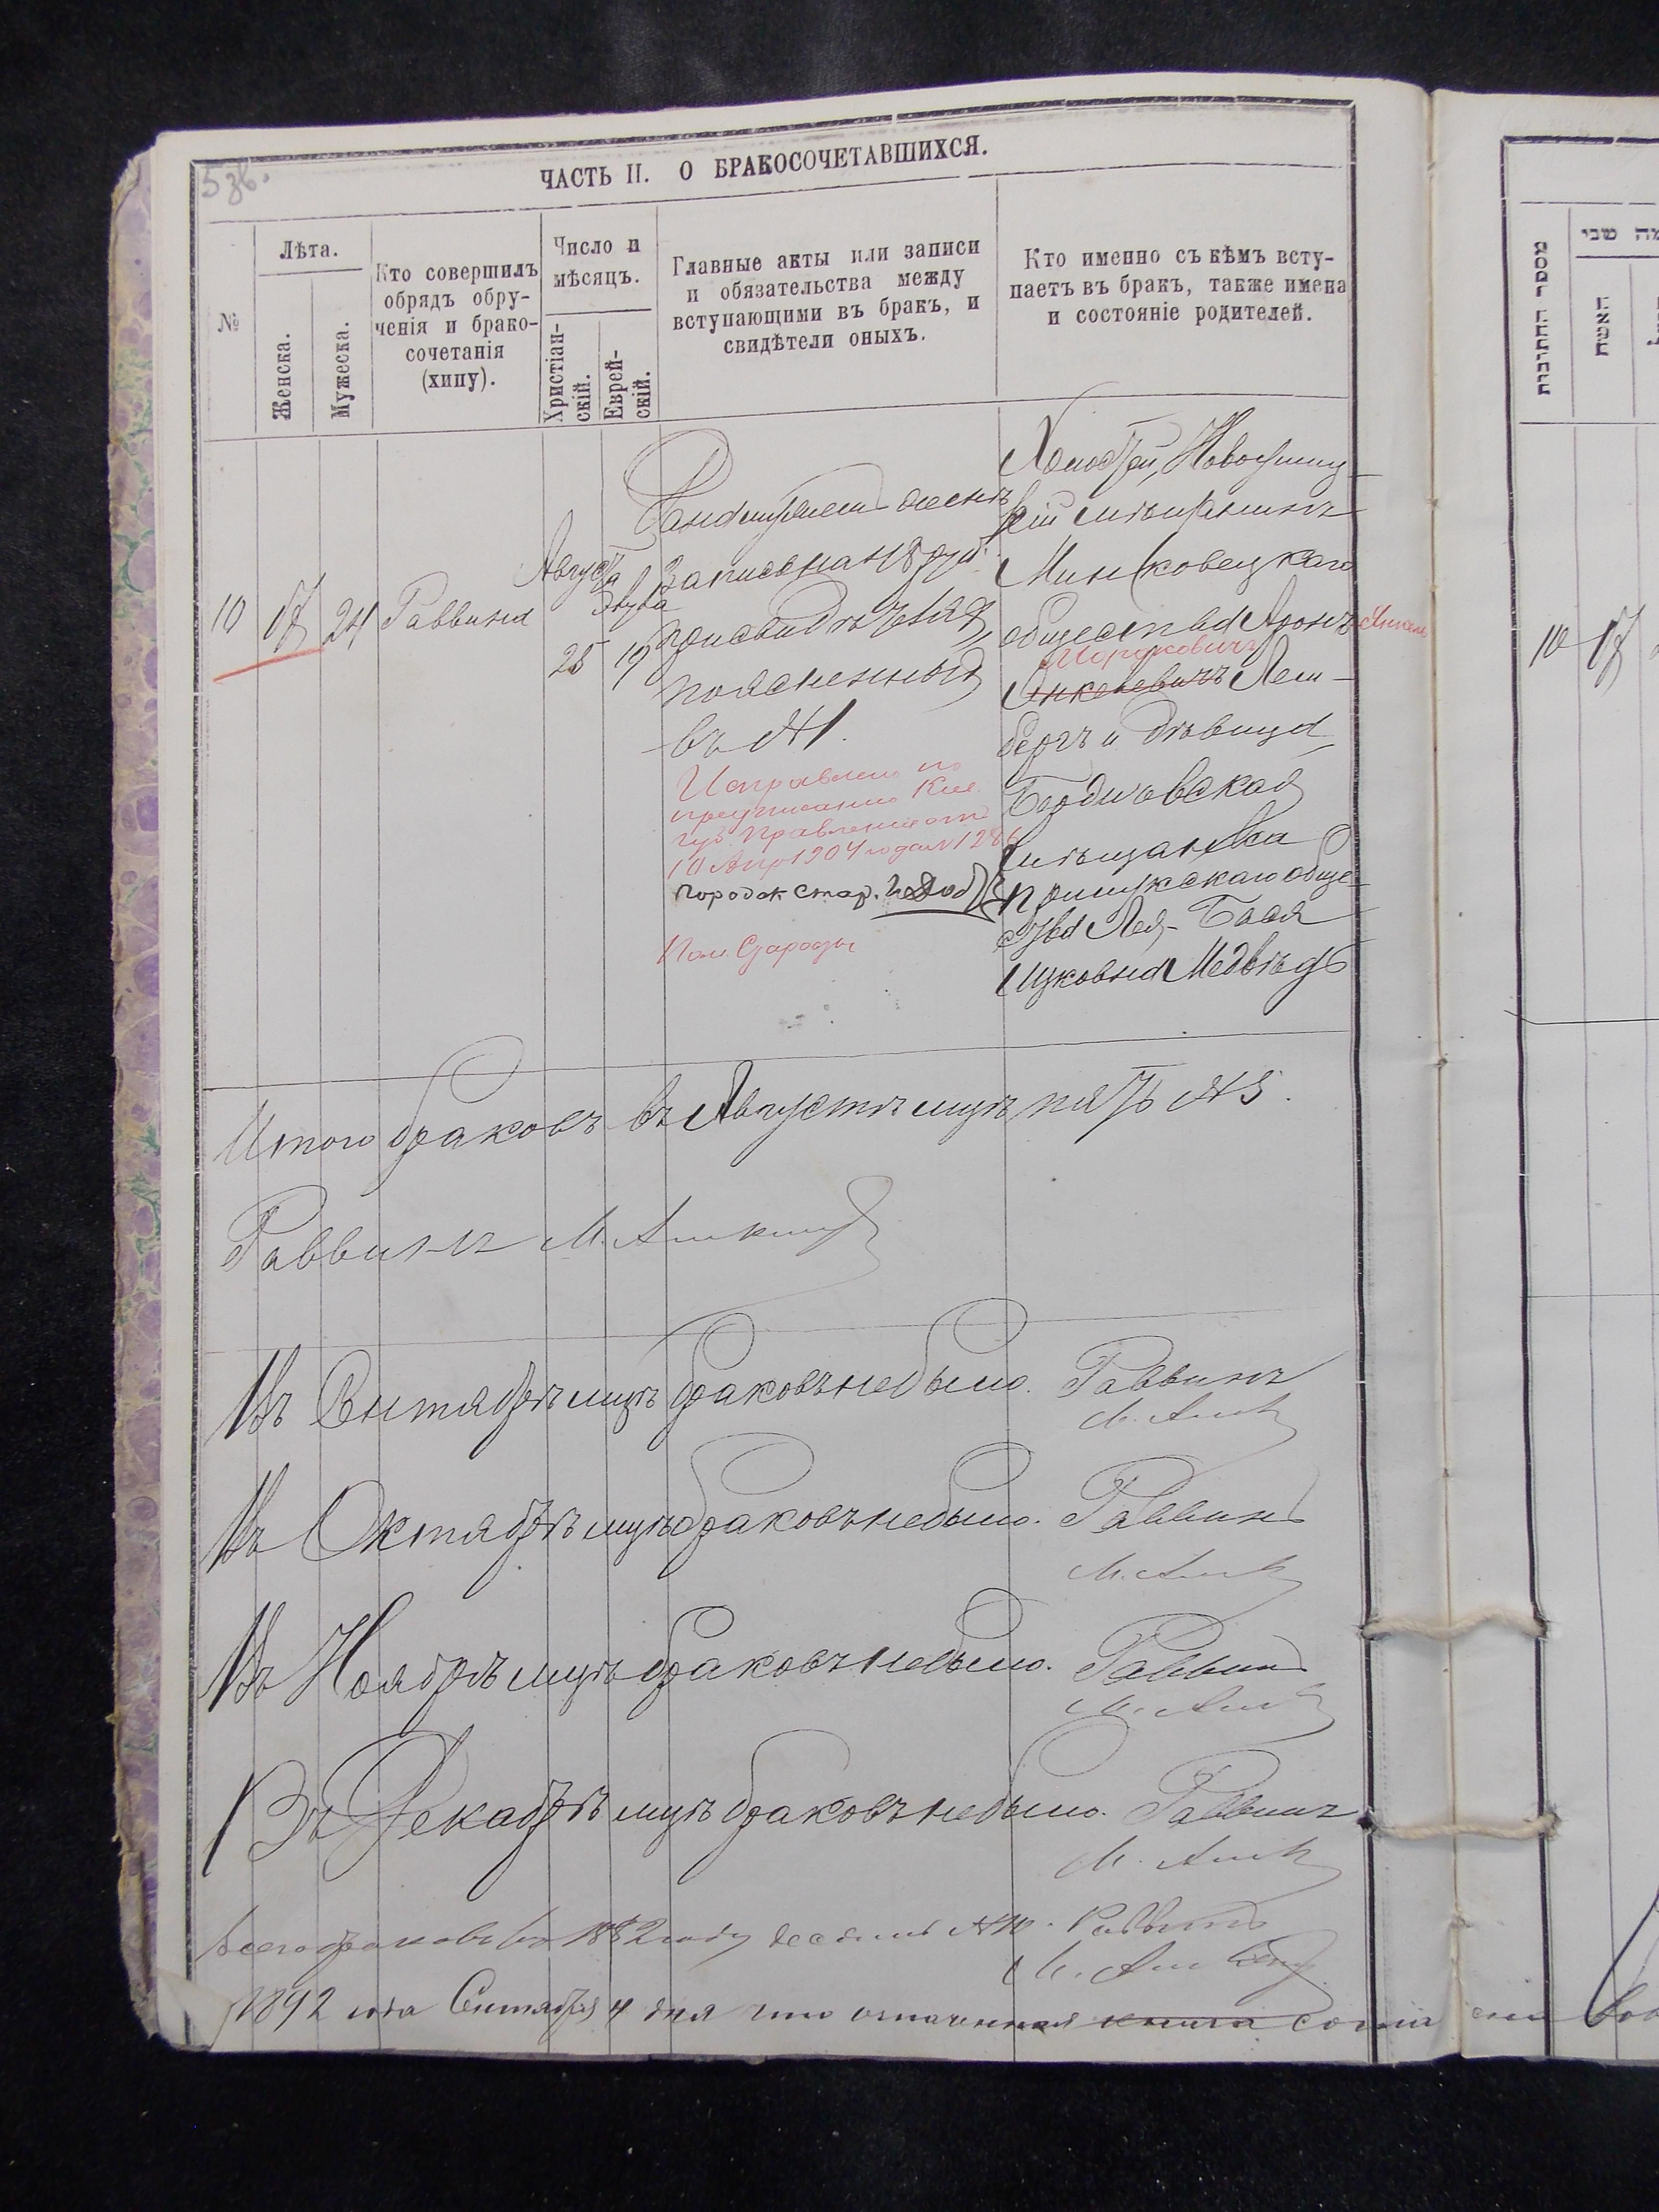 5 зв.
ЧАСТЬ II. О БРАКОСОЧЕТАВШИХСЯ.
№
Лѣта.
Женска.
Мужеска.
Кто совершилъ
обрядъ обру-
ченія и брако-
сочетанія
(хипу).
Число и
мѣсяцъ.
Христіан-
скій.
Еврей-
скій.
Главные акты или записи
и обязательства между
вступающими въ бракъ, и
свидѣтели оныхъ.
Кто именно съ кѣмъ всту-
паетъ въ бракъ, также имена
и состояніе родителей.
10
17
24
Раввинъ
Августа
25
Элула
19
запись на 48 руб.
при свидѣтеляхъ
поясненный
въ №1.
Исправлено по
предписанію Кіев.
губ. Правленія отъ
10 Апр 1904 года № 1286
Город. Стар.
Пом. Старосты
Холостой, Новоушиц-
кій мѣщанинъ
Миньковецкаго
общества Аронъ Янкель
Мордковичъ
Янкелевичъ Лем-
бергъ и дѣвица
Бердичевская
мѣщанка
Прилукскаго обще-
ства Лея-Бася
Ицковна Медвѣдь
Итого браковъ въ Августѣ мцѣ пять №5.
Раввинъ М.
Въ Сентябрѣ мцѣ браковъ не было. Раввинъ
М.
Въ Октябрѣ мцѣ браковъ не было. Раввинъ
М.
Въ Ноябрѣ мцѣ браковъ не было. Раввинъ
М.
Въ Декабрѣ мцѣ браковъ не было. Раввинъ
М.
Всего браковъ въ 1882 году десять №10. Раввинъ
М.
1892 года Сентября 4 дня что означенная книга
מספר החתונות
האשה
10
17